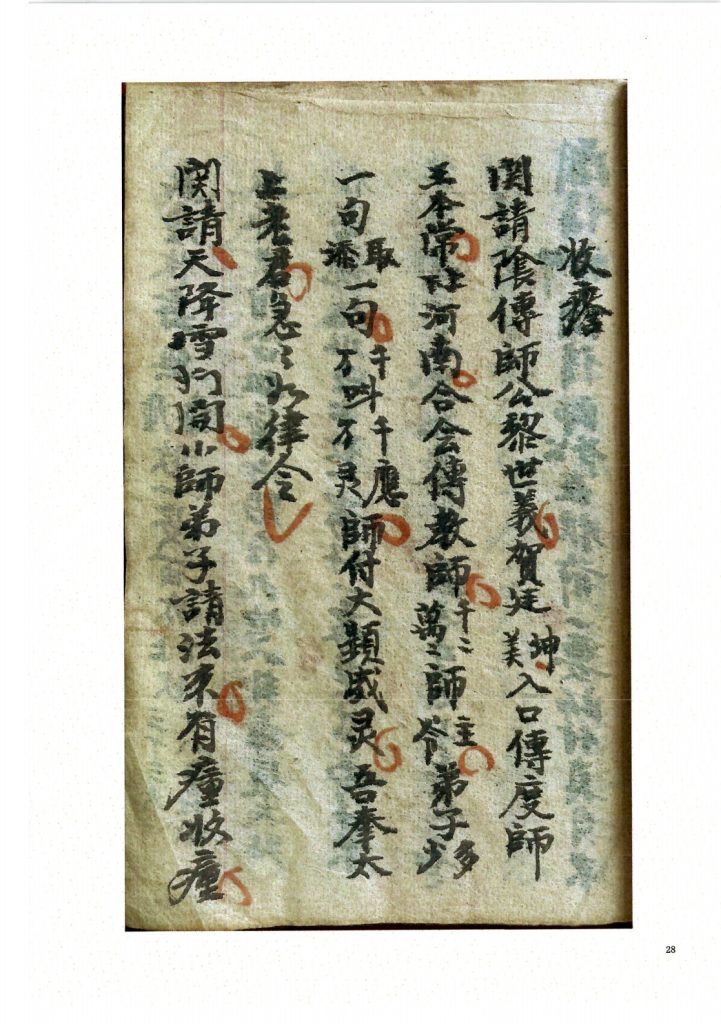 收瘡
関請陰傳師公黎世義賀廷坤美入口傳度師
王本常
河南合会傳教師千二萬二師主爷弟子多少
一句取添一句千叫千應万叫万灵師付大顕威灵吾奉太
上老君急〻如律令
関請天降雪門開小師弟子請法來有瘴收瘴
28